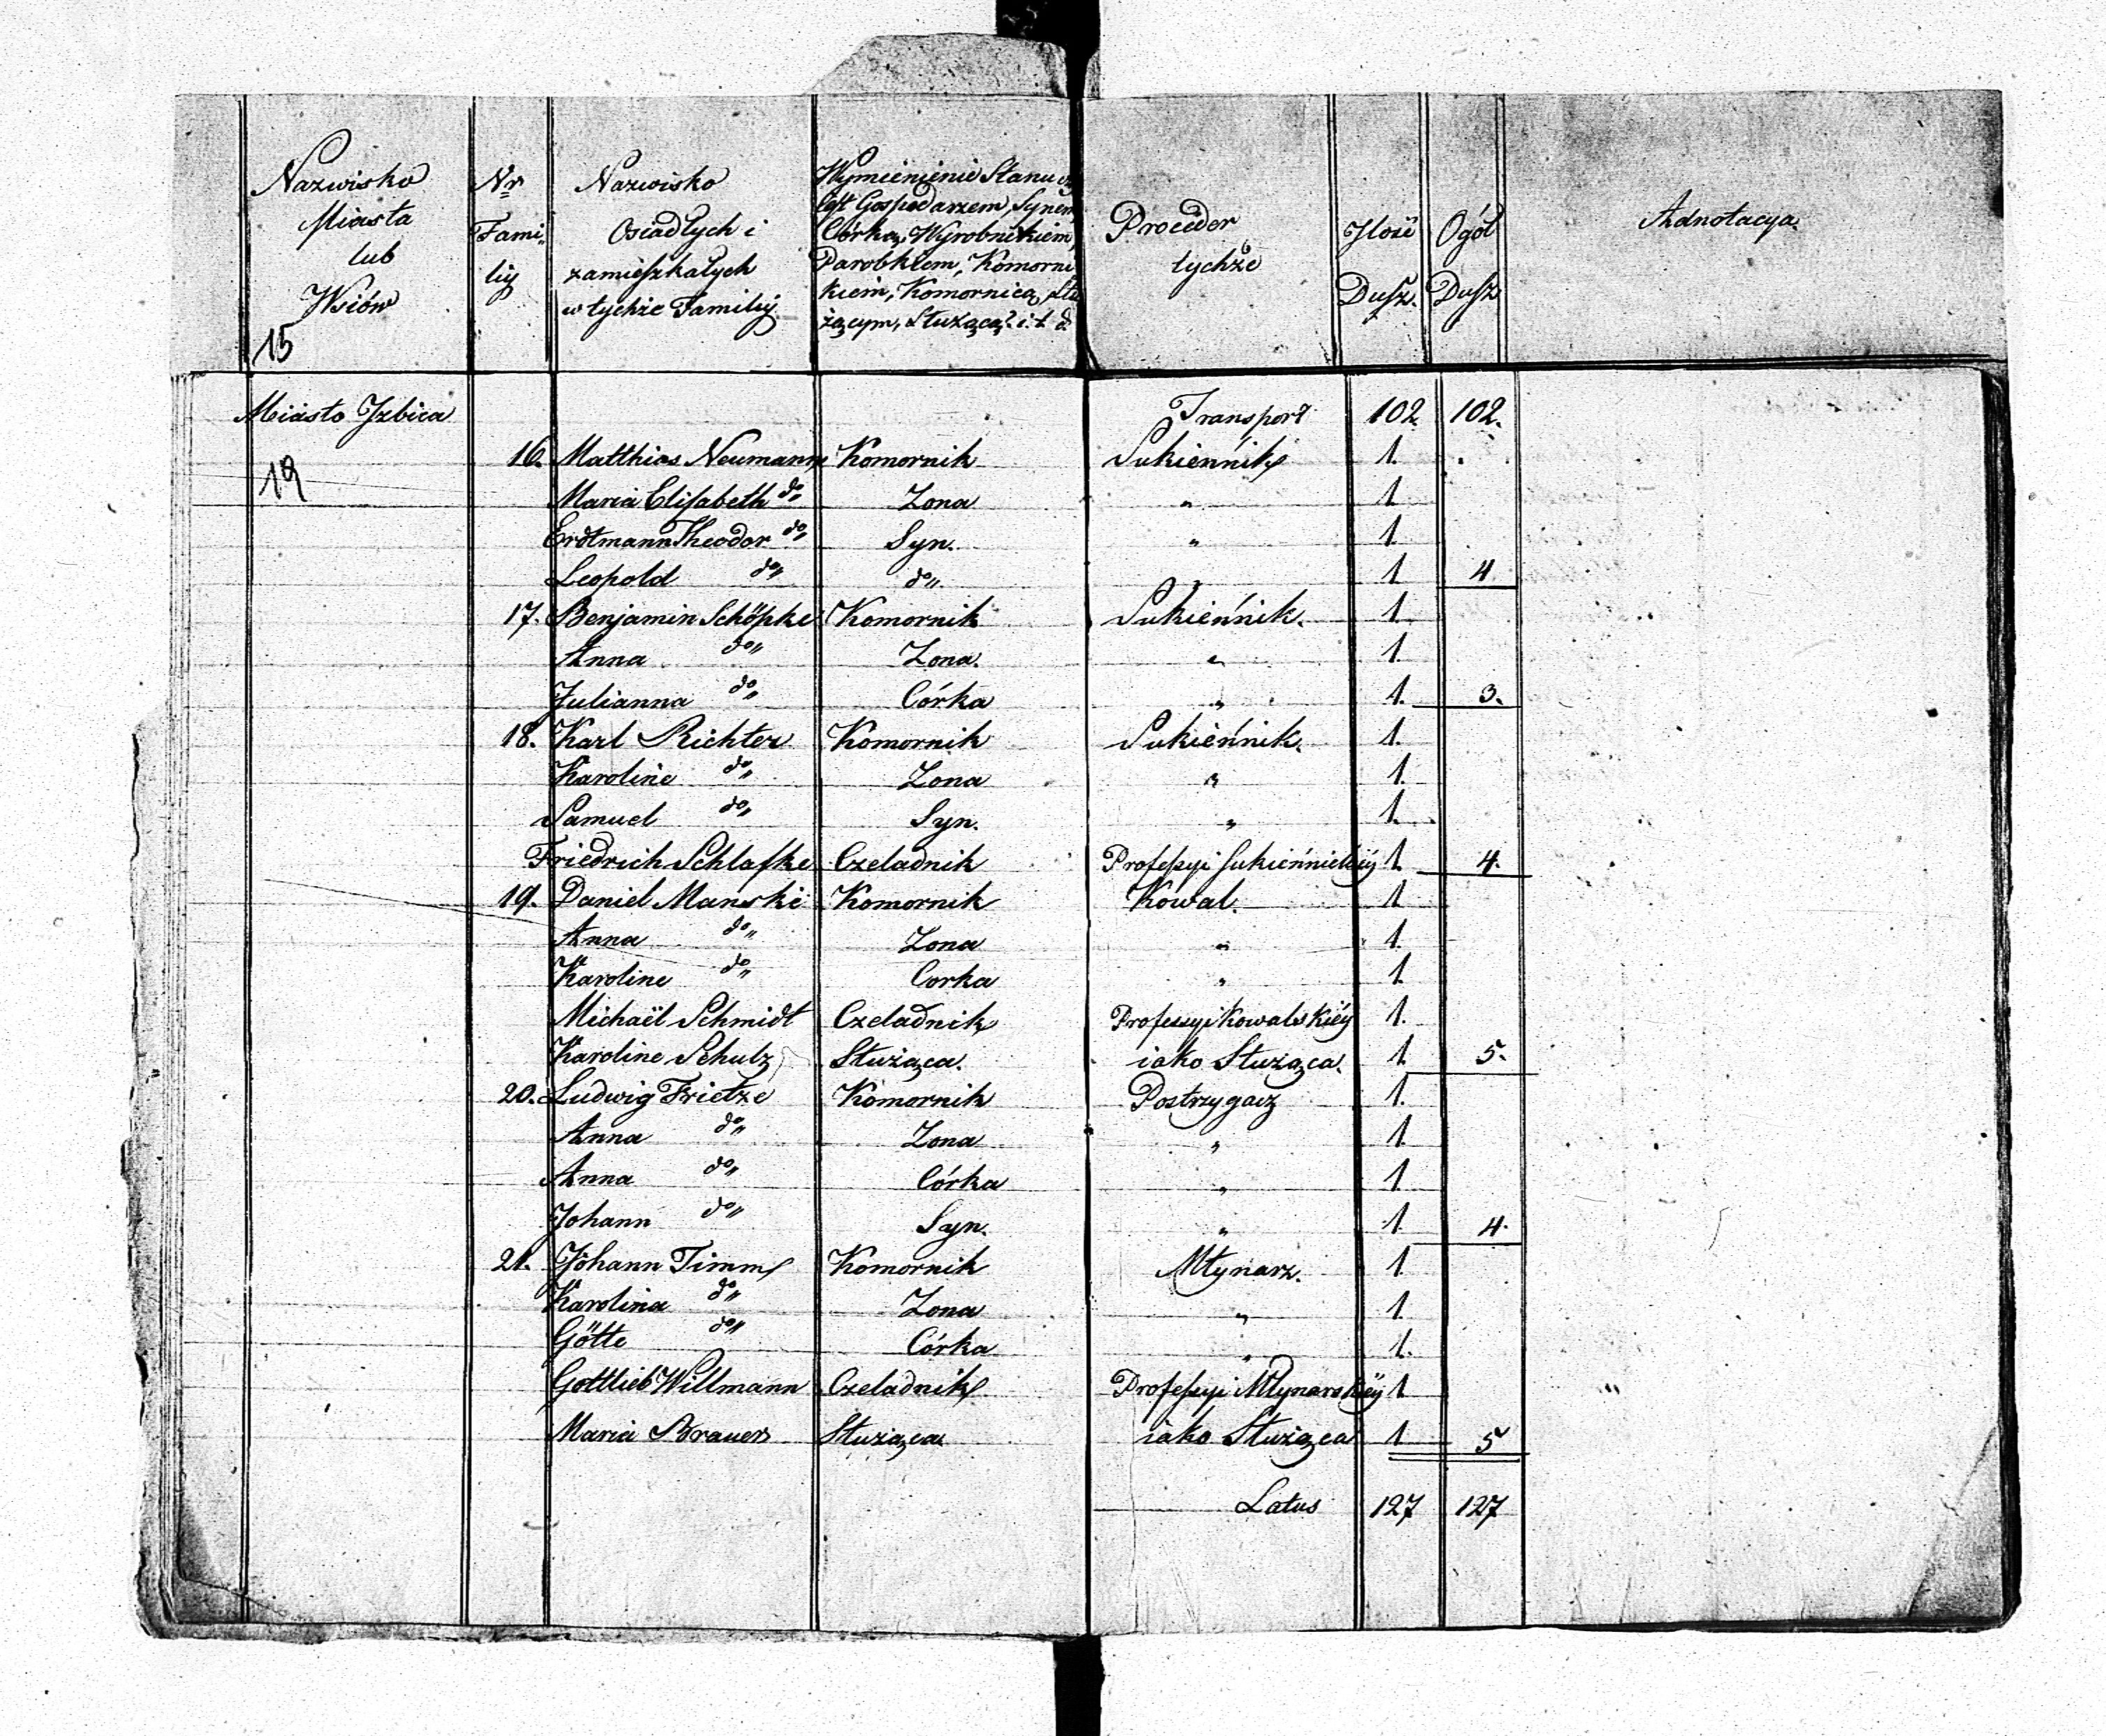 Nazwisko
Miasta
lub
Wsiów
15
Nr
Fami-
lij
Nazwisko
Osiadłych i
zamieszkałych
w tychże Familij
Wymienienie Stanu
Gospodarzem, Synem
Córką, Wyrobnikiem
Parobkiem, Komorni
kiem, Komornicą, Słu
żącym, Służącą i. t. d.
Proceder
tychże
Jlość
Dusz.
Ogół
Dusz
Adnotacya.
Miasto Jzbica Transport 102. 102.
19
16. Matthias Neumann Komornik Sukiennik 1.
Maria Elisabeth do„ Zona „ 1
Erdtmann Theodor do„ Syn. „ 1.
Leopold do„ do„ „ 1 4
17. Benjamin Schöpke Komornik Sukiennik. 1.
Anna do„ Zona. „ 1.
Julianna do„ Córka „ 1. 3.
18. Karl Richter Komornik Sukiennik. 1.
Karoline do„ Zona „ 1.
Samuel do„ Syn. „ 1.
Friedrich Schlafke Czeladnik Professyi Sukiennickiéy 1. 4.
19. Daniel Manski Komornik Kowal. 1
Anna do„ Zona „ 1.
Karoline do„ Corka „ 1.
Michaël Schmidt Czeladnik Professyi Kowalskiéy 1.
Karoline Schulz Służąca. iako Służąca. 1. 5.
20. Ludwig Frietze Komornik Postrzygacz 1.
Anna do„ Zona „ 1.
Anna do„ Córka „ 1
Johann do„ Syn. „ 1 4.
21. Johann Timm Komornik Młynarz. 1
Karolina do„ Zona „ 1.
Götte do„ Córka „ 1.
Gottlieb Willmann Czeladnik Professyi Młynarskiéy 1
Maria Brauer Służąca iako Służąca 1 5
Latus 127 127